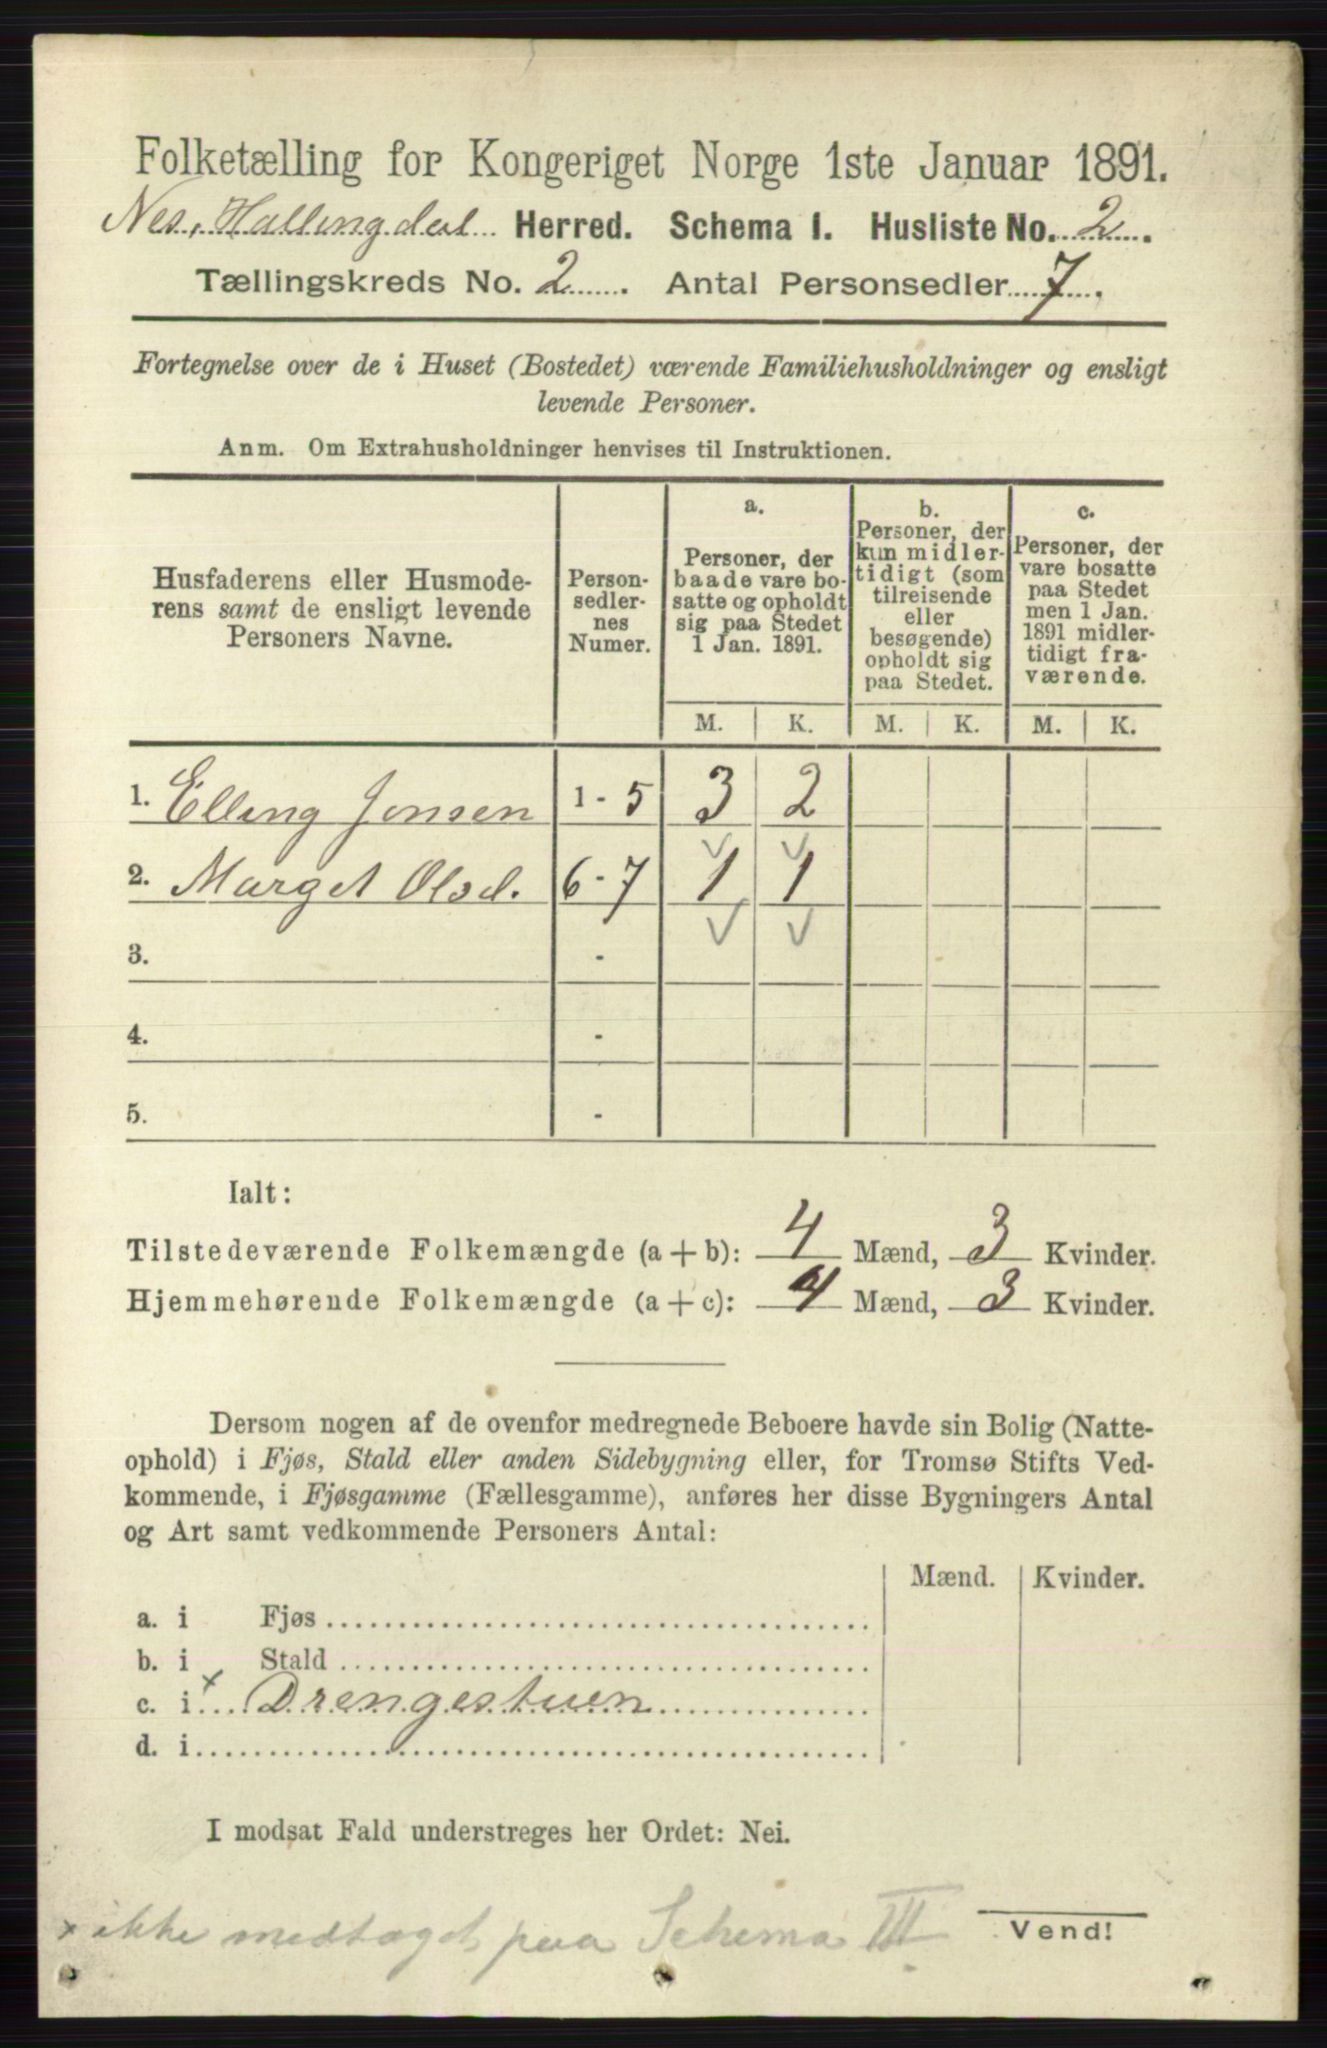 Folketælling for Kongeriget Norge 1ste Januar 1891.
Nes, Hallingdal Herred. Schema I. Husliste No. 2.
Tællingskreds No. 2. Antal Personsedler 7.
Fortegnelse over de i Huset (Bostedet) værende Familiehusholdninger og ensligt
levende Personer.
Anm. Om Extrahusholdninger henvises til Instruktionen.
Husfaderens eller Husmode-
rens samt de ensligt levende
Personers Navne.
Person-
sedler-
nes
Numer.
a.
Personer, der
baade vare bo-
satte og opholdt
sig paa Stedet
1 Jan. 1891.
b.
Personer, der
kun midler-
tidigt (som
tilreisende
eller
besøgende)
opholdt sig
paa Stedet.
c.
Personer, der
vare bosatte
paa Stedet
men 1 Jan.
1891 midler-
tidigt fra-
værende.
M. K. M. K. M. K.
1. Elling Jonsen 1 - 5 3 2
2. Marget Olsd. 6 - 7 1 1
3. -
4. -
5. -
Ialt:
Tilstedeværende Folkemængde (a + b): 4 Mænd, 3 Kvinder.
Hjemmehørende Folkemængde (a + c): 4 Mænd, 3 Kvinder.
Dersom nogen af de ovenfor medregnede Beboere havde sin Bolig (Natte-
ophold) i Fjøs, Stald eller anden Sidebygning eller, for Tromsø Stifts Ved-
kommende, i Fjøsgamme (Fællesgamme), anføres her disse Bygningers Antal
og Art samt vedkommende Personers Antal:
Mænd. Kvinder.
a. i Fjøs
b. i Stald
c. i x Drengestuen
d. i
I modsat Fald understreges her Ordet: Nei.
x ikke medtaget paa Schema III
Vend!